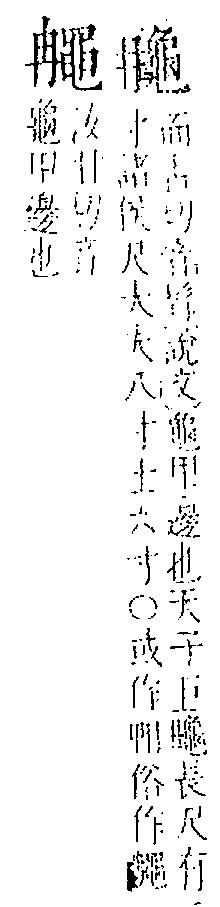 䶲
而占切音髯說文龜甲邊也天子巨䶲長尺有
寸諸侯尺大夫八寸士六寸○或作俗作
汝甘切音
龜甲邊也